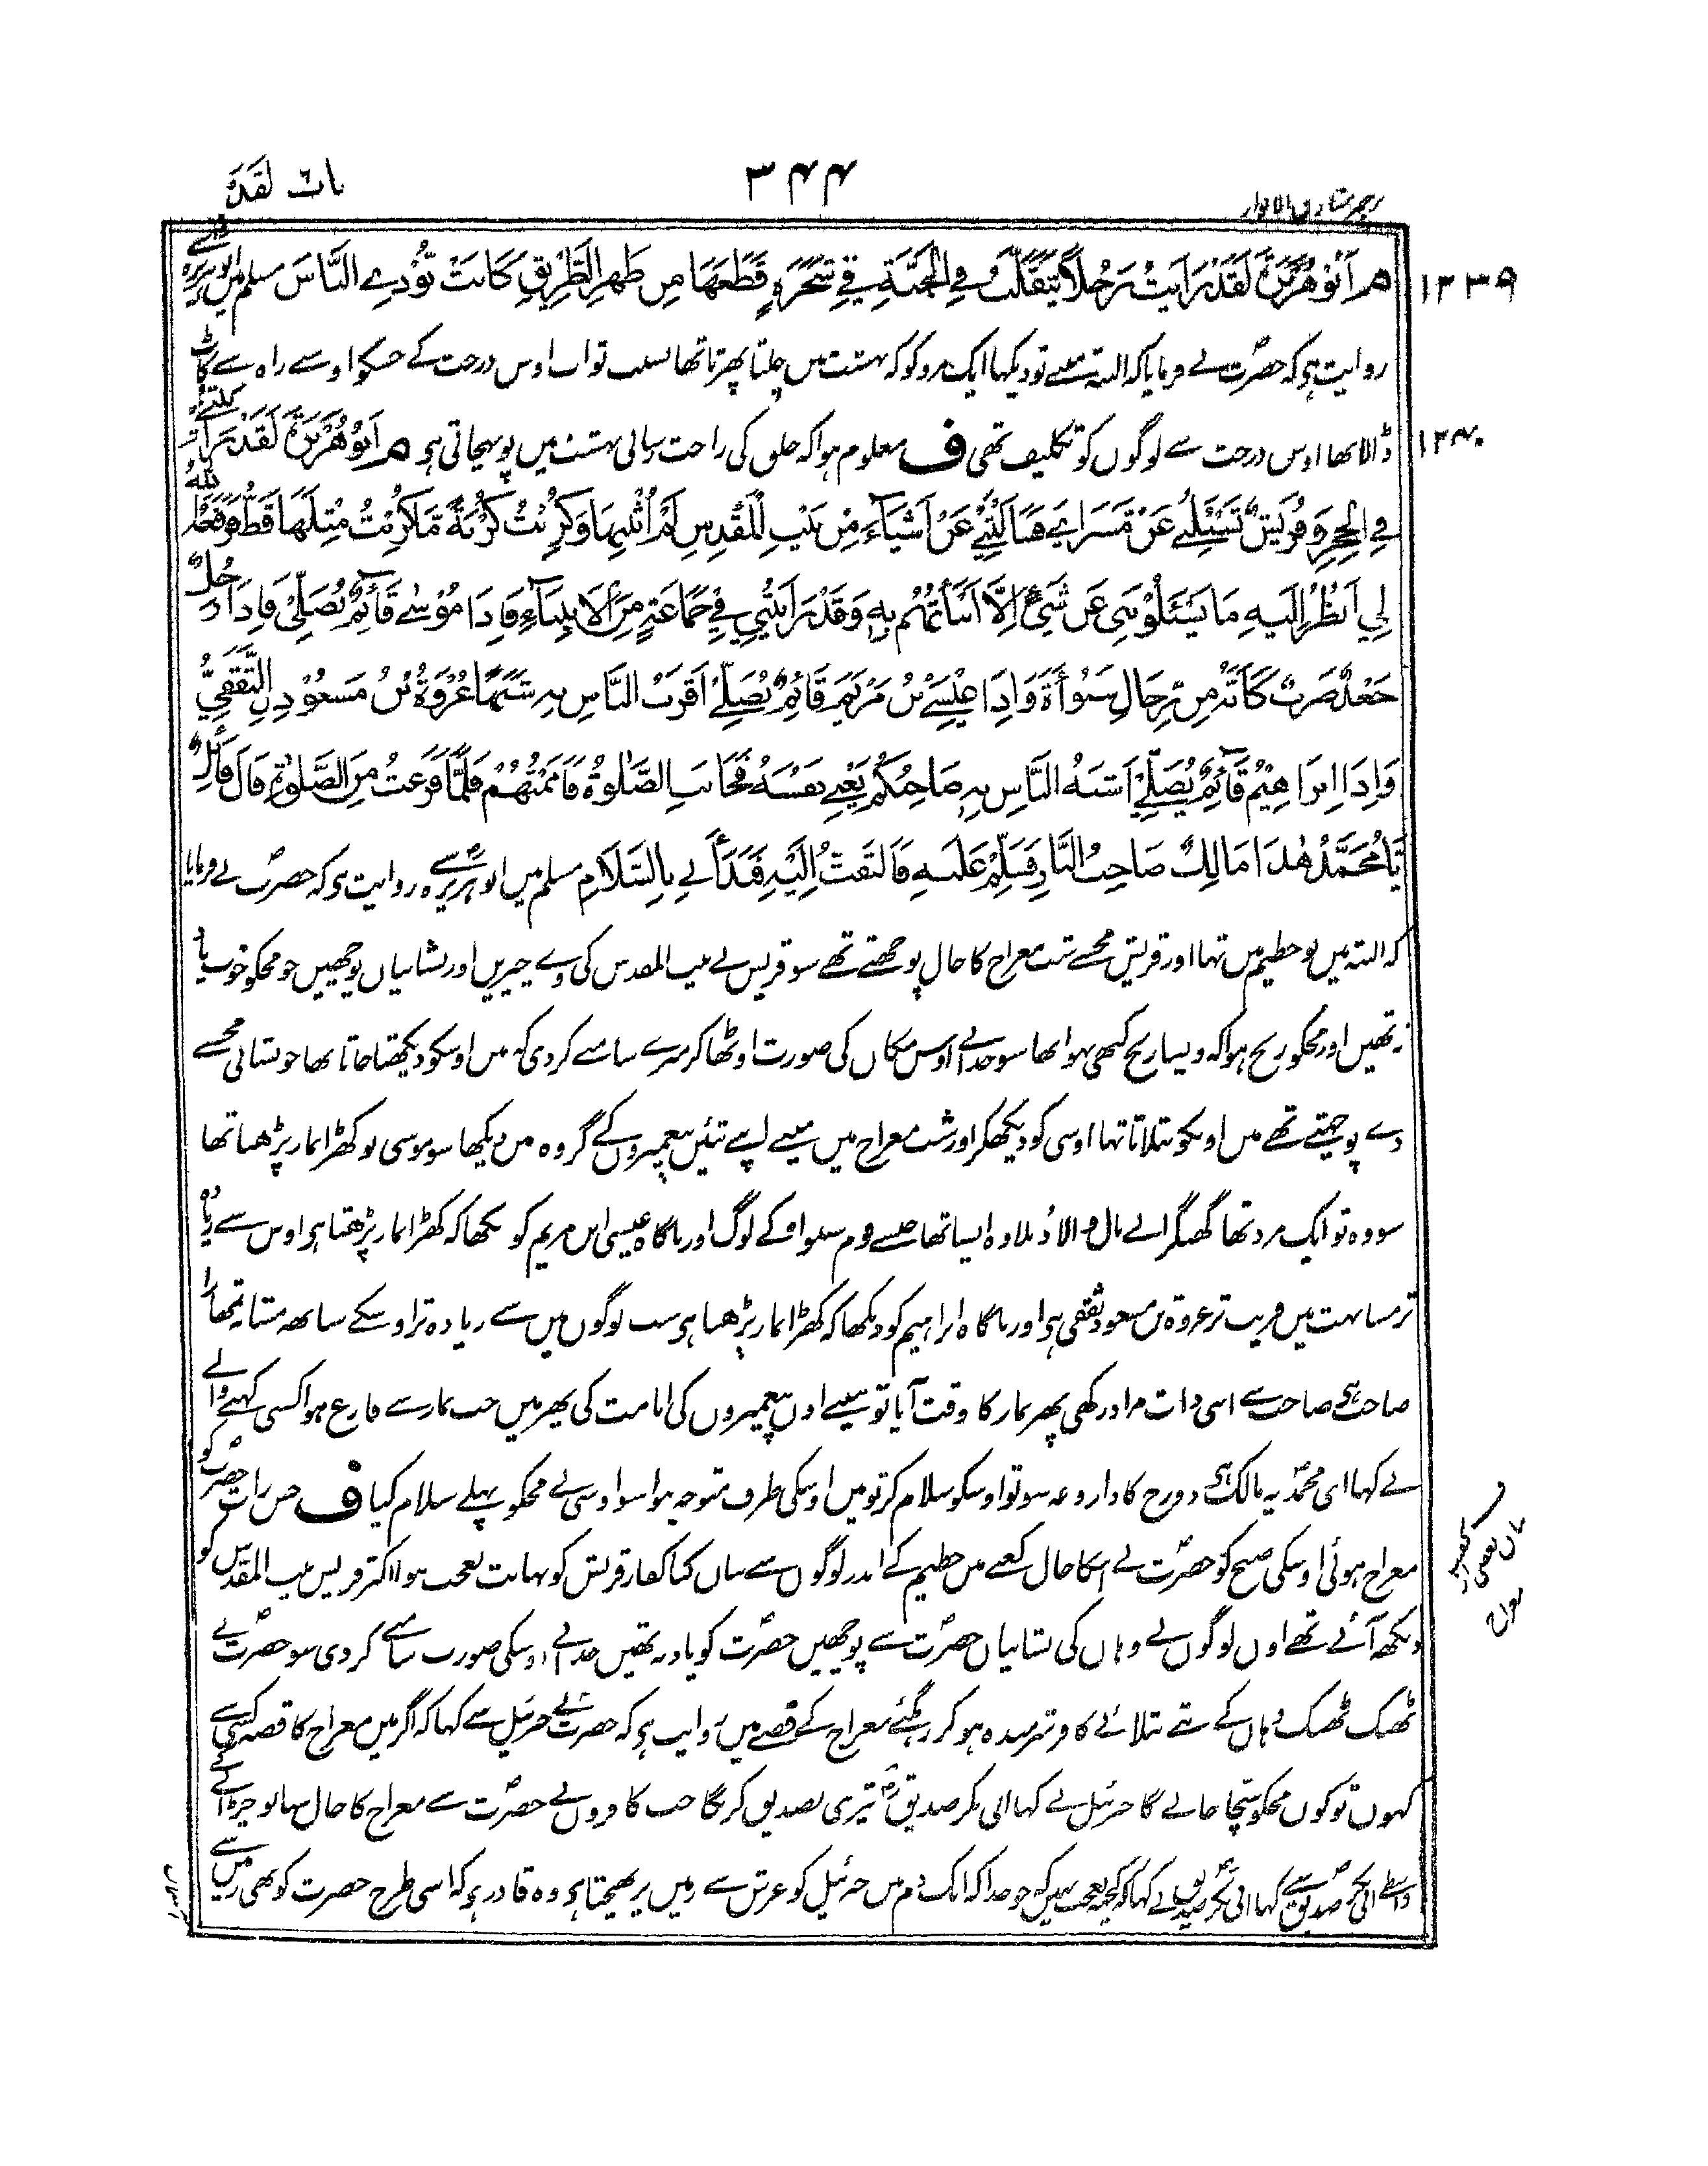 ترجمہ مشارق الانوار
۳۴۴
باب ٦ لقد
۱۳۳۹
م اَبُوْ هُرَيْرَةَ لَقَدْ رَاَيْتُ رَجُلًا يَتَقَلَّبُ فِي الْجَنَّةِ فِيْ شَجَرَةٍ قَطَعَهَا مِنْ ظَهْرِ الطَّرِيْقِ كَانَتْ تُؤْذِي النَّاسَ مسلم میں ابو ہریرہ سے
روایت ہی کہ حضرت نے فرمایا کہ البتہ مینے تو دیکہا ایک مرد کو کہ بہشت میں چلتا پھرتا تھا بسبب ثواب اوس درخت کے جسکو اوسنے راہ سے کاٹ
۱۳۴۰
ڈالا تھا اوس درخت سے لوگوں کو تکلیف تھی ف معلوم ہوا کہ خلق کی راحت رسانی بہشت میں پہنچاتی ہی م اَبُوْ هُرَيْرَةَ لَقَدْ رَاَيْتُنِيْ
فِي الْحِجْرِ وَقُرَيْشٌ تَسْئَلُنِيْ عَنْ مَسْرَايَ فَسَاَلَتْنِيْ عَنْ اَشْيَاءَ مِنْ بَيْتِ الْمُقَدَّسِ لَمْ اُثْبِتْهَا وَكُرِبْتُ كُرْبَةً مَّا كُرِبْتُ مِثْلَهَا قَطُّ فَرَفَعَهُ اللهُ
لِيْ اَنْظُرُ اِلَيْهِ مَا يَسْئَلُوْنِيْ عَنْ شَيْءٍ اِلَّا اَنْبَأْتُهُمْ بِهِ وَقَدْ رَاَيْتُنِيْ فِيْ جَمَاعَةٍ مِنَ الْاَنْبِيَاءِ فَاِذَا مُوْسٰى قَائِمٌ يُصَلِّيْ فَاِذَا رَجُلٌ
جَعْدٌ ضَرْبٌ كَاَنَّهُ مِنْ رِجَالِ شَنُوْأَةَ وَاِذَا عِيْسَى بْنُ مَرْيَمَ قَائِمٌ يُصَلِّيْ اَقْرَبُ النَّاسِ بِهِ شَبَهًا عُرْوَةُ بْنُ مَسْعُوْدِنِ الثَّقَفِيُّ
وَاِذَا اِبْرَاهِيْمُ قَائِمٌ يُصَلِّيْ اَشْبَهُ النَّاسِ بِهِ صَاحِبُكُمْ يَعْنِيْ نَفْسَهُ فَحَانَتِ الصَّلٰوةُ فَاَمَمْتُهُمْ فَلَمَّا فَرَغْتُ مِنَ الصَّلٰوةِ قَالَ قَائِلٌ
يَا مُحَمَّدُ هٰذَا مَالِكٌ صَاحِبُ النَّارِ فَسَلِّمْ عَلَيْهِ فَالْتَفَتُّ اِلَيْهِ فَبَدَأَنِيْ بِالسَّلَامِ مسلم میں ابو ہریرہ سے روایت ہی کہ حضرت نے فرمایا
کہ البتہ میں تو حطیم میں تہا اور قریش مجسے شب معراج کا حال پوچھتے تھے سو قریش نے بیت المقدس کی وے چیزیں اور نشانیاں پوچھیں جو مجکو خوب یاد
نتھیں اور مجکو رنج ہوا کہ ویسا رنج کبھی نہوا تھا سو خدا نے اوس مکان کی صورت اوٹھا کر میرے سامنے کر دی کہ میں اوسکو دیکھتا جاتا تھا جو نشانی مجسے
وے پوچہتے تھے میں اونکو بتلاتا تہا اوسی کو دیکھکر اور شب معراج میں مینے اپنے تئیں پیغمبروں کے گروہ میں دیکھا سو موسی تو کھڑا نماز پڑھتا تھا
سو وہ تو ایک مرد تھا گھنگرالے بال والا دبلا وہ ایسا تھا جیسے قوم شنوأہ کے لوگ اور ناگاہ عیسی ابن مریم کو دیکھا کہ کھڑا نماز پڑھتا ہی اوس سے زیادہ
تر مشابہت میں قریب تر عروہ بن مسعود ثقفی ہی اور ناگاہ ابراہیم کو دیکھا کہ کھڑا نماز پڑھتا ہی سب لوگوں میں سے زیادہ تر اوسکے ساتھ مشابہ تمھارا
صاحب ہی صاحب سے اپنی ذات مراد رکھی پھر نماز کا وقت آیا تو مینے اون پیغمبروں کی امامت کی پھر میں جب نماز سے فارغ ہوا کسی کہنے والے
نے کہا ای محمد یہ مالک ہی دوزخ کا داروغہ سو تو اوسکو سلام کر تو میں اوسکی طرف متوجہ ہوا سو اوسی نے مجکو پہلے سلام کیا ف جس رات حضرت کو
معراج ہوئی اوسکی صبح کو حضرت نے اسکا حال کعبے میں حطیم کے اندر لوگوں سے بیان کیا کفار قریش کو نہایت تعجب ہوا اکثر قریش بیت المقدس کو
دیکھ آئے تھے اون لوگوں نے وہاں کی نشانیاں حضرت سے پوچھیں حضرت کو یاد نہ تھیں خدا نے اوسکی صورت سامنے کر دی سو حضرت نے
ٹھیک ٹھیک وہاں کے پتے بتلائے کافر شرمندہ ہو کر رہگئے معراج کے قصے میں روایت ہی کہ حضرت نے جبرئیل سے کہا کہ اگر میں معراج کا قصہ کسی سے
کہوں تو کون مجکو سچا جانے گا جبرئیل نے کہا ابی بکر صدیق تیری تصدیق کریگا جب کافروں نے حضرت سے معراج کا حال سنا تو
ابی بکر صدیق سے کہا ابی بکر صدیق نے کہا کہ کچھ تعجب نہیں کہ جو خدا کہ ایک دم میں جبرئیل کو عرش سے زمین پر بھیجتا ہی وہ قادر ہی کہ اسی طرح حضرت کو بھی زمین سے
معراج